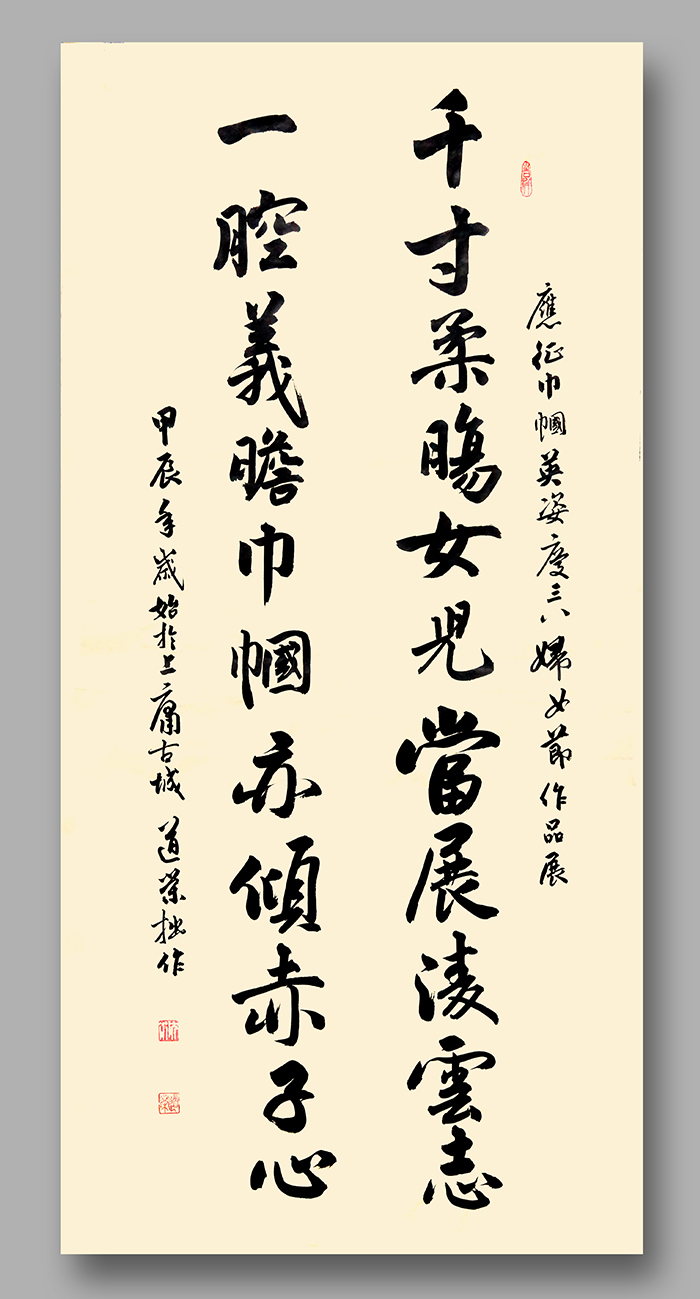 應征巾幗英姿慶三八婦女節作品展
千寸柔腸女兒當展淩雲志
一腔義膽巾幗亦傾赤子心
甲辰年歲始於上庸古城 道榮拙作